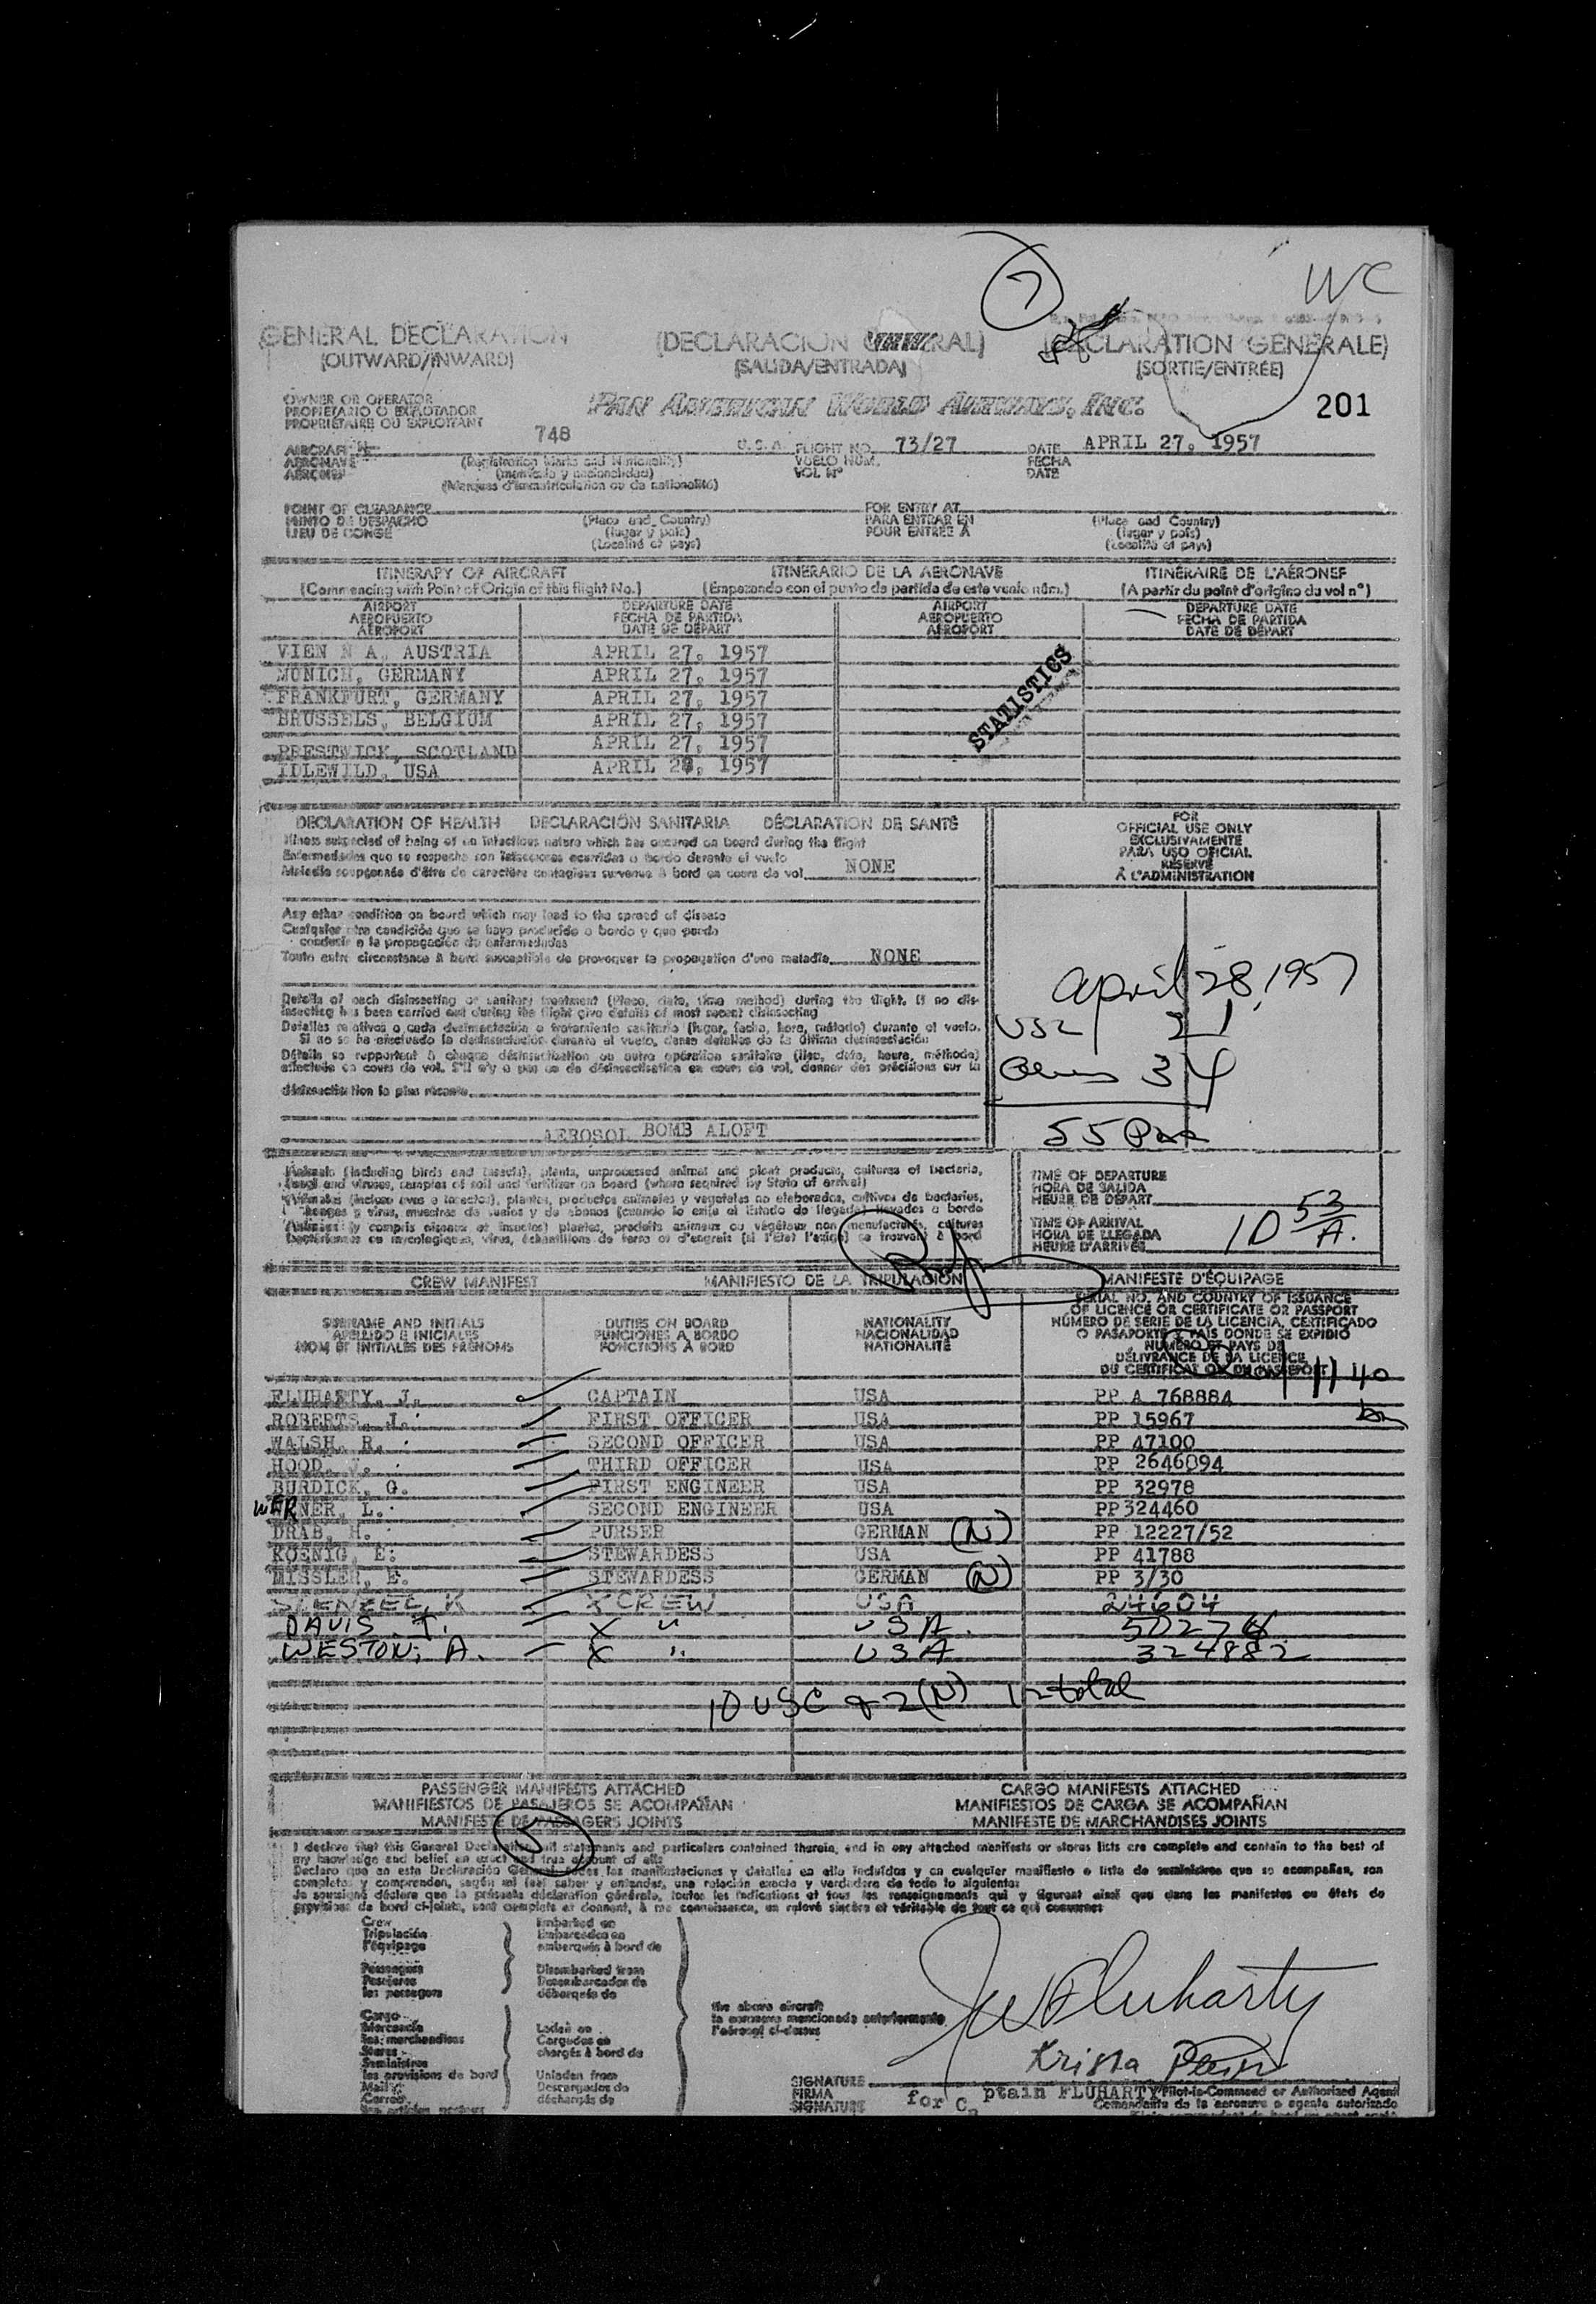 7
WC
GENERAL DECLARATION (DECLARACION GENERAL) (DECLARATION GENERALE)
(OUTWARD/INWARD) (SALIDA/ENTRADA) (SORTIE/ENTRÉE)
OWNER OR OPERATOR
PROPIETARIO O EXPLOTADOR
PROPRIÉTAIRE OU EXPLOITANT
PAN AMERICAN WORLD AIRWAYS, INC. 201
AIRCRAFT N 748 U.S.A. FLIGHT NO. 73/27 DATE APRIL 27, 1957
AERONAVE (Registration Marks and Nationality) VUELO NÚM. FECHA
AÉRONEF (matrícula y nacionalidad) VOL Nº DATE
(Marques d'immatriculation ou de nationalité)
POINT OF CLEARANCE FOR ENTRY AT
PUNTO DE DESPACHO (Place and Country) PARA ENTRAR EN (Place and Country)
LIEU DE CONGÉ (lugar y país) POUR ENTRÉE À (lugar y país)
(Localité et pays) (Localité et pays)
ITINERARY OF AIRCRAFT ITINERARIO DE LA AERONAVE ITINÉRAIRE DE L'AÉRONEF
(Commencing with Point of Origin of this flight No.) (Empezando con el punto de partida de este vuelo núm.) (A partir du point d'origine du vol nº)
AIRPORT DEPARTURE DATE AIRPORT DEPARTURE DATE
AEROPUERTO FECHA DE PARTIDA AEROPUERTO FECHA DE PARTIDA
AÉROPORT DATE DE DÉPART AÉROPORT DATE DE DÉPART
VIEN N A, AUSTRIA APRIL 27, 1957
MUNICH, GERMANY APRIL 27, 1957
FRANKFURT, GERMANY APRIL 27, 1957
BRUSSELS, BELGIUM APRIL 27, 1957
PRESTWICK, SCOTLAND APRIL 27, 1957
IDLEWILD, USA APRIL 28, 1957
STATISTICS
DECLARATION OF HEALTH DECLARACIÓN SANITARIA DÉCLARATION DE SANTÉ
Illness suspected of being of an infectious nature which has occured on board during the flight
Enfermedades que se sospecha son infecciosas ocurridas a bordo durante el vuelo
Maladie soupçonnée d'être de caractère contagieux survenue à bord en cours de vol NONE
Any other condition on board which may lead to the spread of disease
Cualquier otra condición que se haya producido a bordo y que pueda
conducir a la propagación de enfermedades
Toute autre circonstance à bord susceptible de provoquer la propagation d'une maladie NONE
Details of each disinsecting or sanitary treatment (Place, date, time method) during the flight. If no dis-
insecting has been carried out during the flight give details of most recent disinsecting
Detalles relativos a cada desinsectación o tratamiento sanitario (lugar, fecha, hora, método) durante el vuelo.
Si no se ha efectuado la desinsectación durante el vuelo, dense detalles de la última desinsectación
Détails se rapportant à chaque désinsectisation ou autre opération sanitaire (lieu, date, heure, méthode)
effectuée en cours de vol. S'il n'y a pas eu de désinsectisation en cours de vol, donner des précisions sur la
désinsectisation la plus récente
AEROSOL BOMB ALOFT
FOR
OFFICIAL USE ONLY
EXCLUSIVAMENTE
PARA USO OFICIAL
RÉSERVÉ
À L'ADMINISTRATION
April 28, 1957
USC 21
Aliens 34
55 Pax
Animals (including birds and insects), plants, unprocessed animal and plant products, cultures of bacteria,
fungi and viruses, samples of soil and fertilizer on board (where required by State of arrival)
Animales (incluso aves e insectos), plantas, productos animales y vegetales no elaborados, cultivos de bacterias,
hongos y virus, muestras de suelos y de abonos (cuando lo exija el Estado de llegada) llevados a bordo
Animaux (y compris oiseaux et insectes) plantes, produits animaux ou végétaux non manufacturés, cultures
bactériennes ou mycologiques, virus, échantillons de terre et d'engrais (si l'État l'exige) se trouvant à bord
TIME OF DEPARTURE
HORA DE SALIDA
HEURE DE DÉPART
TIME OF ARRIVAL
HORA DE LLEGADA
HEURE D'ARRIVÉE 10 53 A.
CREW MANIFEST MANIFIESTO DE LA TRIPULACIÓN MANIFESTE D'ÉQUIPAGE
SURNAME AND INITIALS DUTIES ON BOARD NATIONALITY SERIAL NO. AND COUNTRY OF ISSUANCE
APELLIDO E INICIALES FUNCIONES A BORDO NACIONALIDAD OF LICENCE OR CERTIFICATE OR PASSPORT
NOM ET INITIALES DES PRÉNOMS FONCTIONS À BORD NATIONALITÉ NÚMERO DE SERIE DE LA LICENCIA, CERTIFICADO
O PASAPORTE Y PAÍS DONDE SE EXPIDIÓ
NUMÉRO ET PAYS DE
DÉLIVRANCE DE LA LICENCE
DU CERTIFICAT OU DU PASSEPORT 1140
FLUHARTY, J. CAPTAIN USA PP A 768884
ROBERTS, J. FIRST OFFICER USA PP 15967
WALSH, R. SECOND OFFICER USA PP 47100
HOOD, V. THIRD OFFICER USA PP 2646894
BURDICK, G. FIRST ENGINEER USA PP 32978
WERNER, L. SECOND ENGINEER USA PP 324460
DRAB, H. PURSER GERMAN (N) PP 12227/52
KOENIG, E. STEWARDESS USA PP 41788
MISSLER, E. STEWARDESS GERMAN (N) PP 3/30
STENZEL, K X CREW USA 24604
DAVIS, T. X " USA.
WESTON, A. X " USA 324882
10 USC & 2 (N) 12 total
PASSENGER MANIFESTS ATTACHED CARGO MANIFESTS ATTACHED
MANIFIESTOS DE PASAJEROS SE ACOMPAÑAN MANIFIESTOS DE CARGA SE ACOMPAÑAN
MANIFESTE DE PASSAGERS JOINTS MANIFESTE DE MARCHANDISES JOINTS
5
I declare that this General Declaration, all statements and particulars contained therein, and in any attached manifests or stores lists are complete and contain to the best of
my knowledge and belief an exact and true account of all:
Declaro que en esta Declaración General, todas las manifestaciones y detalles en ella incluidos y en cualquier manifiesto o lista de suministros que se acompañan, son
completos y comprenden, según mi leal saber y entender, una relación exacta y verdadera de todo lo siguiente:
Je soussigné déclare que la présente déclaration générale, toutes les indications et tous les renseignements qui y figurent ainsi que dans les manifestes ou états de
provisions de bord ci-joints, sont complets et donnent, à ma connaissance, un relevé sincère et véritable de tout ce qui concerne:
Crew Embarked on
Tripulación Embarcados en
l'équipage embarqués à bord de
Passengers Disembarked from
Pasajeros Desembarcados de
les passagers débarqués de
Cargo the above aircraft
Mercancía Laden on la aeronave mencionada anteriormente
les marchandises Cargados en l'aéronef ci-dessus
Stores chargés à bord de
Suministros
les provisions de bord Unladen from
Mail Descargados de
Correo déchargés de
JW Fluharty
Krista
SIGNATURE
FIRMA for Captain FLUHARTY Pilot-in-Command or Authorized Agent
SIGNATURE Comandante de la aeronave o agente autorizado